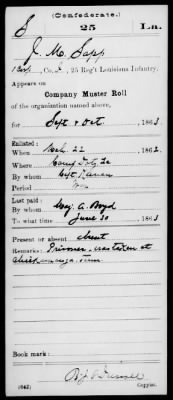 (Confederate.)
S 25 La.
J. M. Sapp
Co. , 25 Reg't Louisiana Infantry.
Appears on
Company Muster Roll
of the organization named above,
for Sept & Oct, 1863
Enlisted:
When Mch 22, 1862
Where Camp
By whom Capt.
Period War
Last paid:
By whom Maj. A. Boyd
To what time June 30, 1863
Present or absent absent
Remarks: Prisoner, was taken at
Chickamauga, Tenn
Book mark:
(642) Copyist.